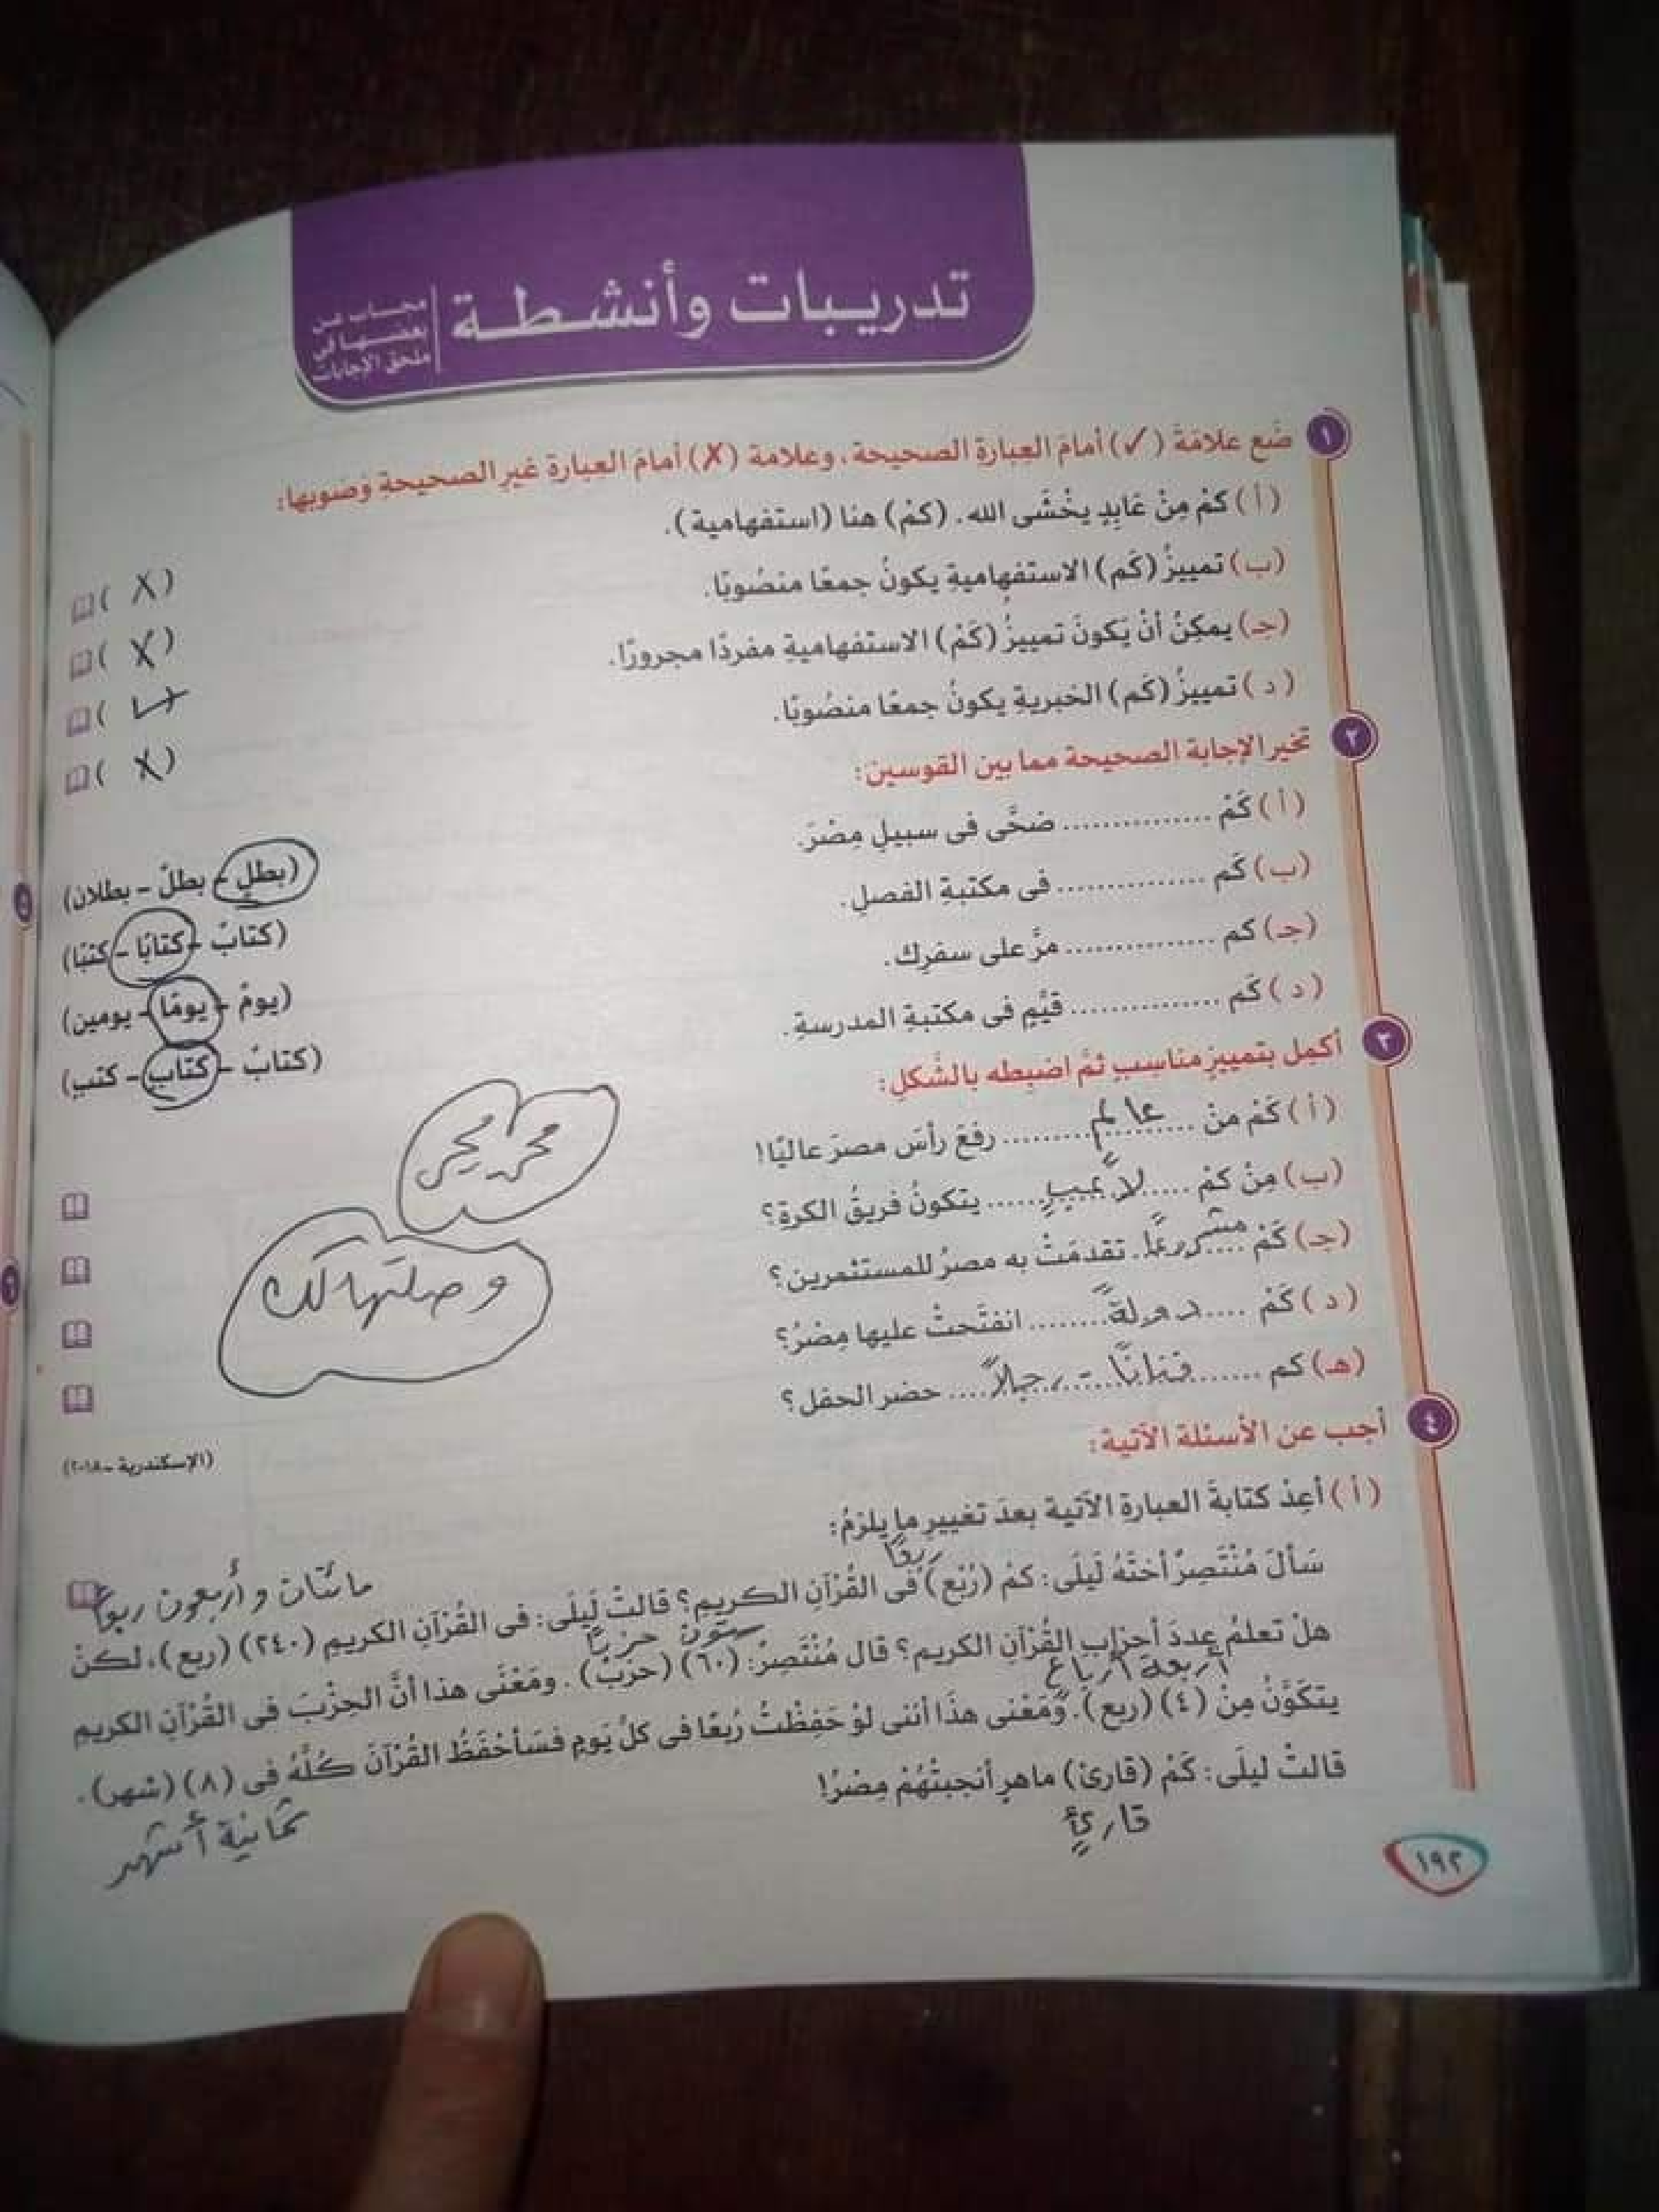 تدريبات وأنشطة
مجاب عن
بعضها في
ملحق الإجابات
١ ضَع علامَةَ (✓) أمامَ العبارةِ الصحيحة، وعلامة (✗) أمامَ العبارة غيرِ الصحيحةِ وصوبها:
(أ) كمْ مِنْ عَابِدٍ يخْشَى الله. (كمْ) هنا (استفهامية). (X)
(ب) تمييزُ (كَم) الاستفهاميةِ يكونُ جمعًا منصُوبًا. (X)
(جـ) يمكِنُ أنْ يَكونَ تمييزُ (كَمْ) الاستفهاميةِ مفردًا مجرورًا. (✓)
(د) تمييزُ (كَم) الخبريةِ يكونُ جمعًا منصُوبًا. (X)
٢ تخير الإجابة الصحيحة مما بين القوسين:
(أ) كَمْ ............... ضحَّى فى سبيلِ مِصْرَ. (بطلٍ - بطلٌ - بطلان)
(ب) كَم ............... فى مكتبةِ الفصلِ. (كتابٌ - كتابًا - كتبًا)
(جـ) كم ............... مرَّ على سفرِك. (يومٌ - يومًا - يومين)
(د) كَم ............... قيَّمٍ فى مكتبةِ المدرسةِ. (كتابٌ - كتابٍ - كتبٍ)
٣ أكمِل بتمييزٍ مناسِبٍ ثمَّ اضبِطه بالشَّكلِ:
(أ) كَمْ مِنْ عالمٍ رفعَ رأسَ مصرَ عاليًا!
(ب) مِنْ كمْ لاعبًا يتكونُ فريقُ الكرةِ؟
(جـ) كَمْ مشروعًا تقدمَتْ به مصرُ للمستثمرين؟
(د) كَمْ دولةً انفتَحتْ عليها مِصْرُ؟
(هـ) كم فنانًا - رجلاً حضر الحفل؟
(الإسكندرية - ٢٠١٨)
محمد يحيى
وصلتها لك
٤ أجب عن الأسئلة الآتية:
(أ) أعِدْ كتابةَ العبارةِ الآتية بعدَ تغييرِ ما يلزمُ:
ربعًا
مائتان وأربعون ربعًا
سَألَ مُنْتَصِرٌ أختَهُ لَيلَى: كمْ (رُبْع) فى القُرْآنِ الكريمِ؟ قالتْ لَيلَى: فى القُرْآنِ الكريمِ (٢٤٠) (ربع)، لكنْ
ستون حزبًا
هلْ تعلمُ عددَ أحزابِ القُرْآنِ الكريم؟ قال مُنْتَصِرٌ: (٦٠) (حزبٌ). ومَعْنَى هذا أنَّ الحِزْبَ فى القُرْآنِ الكريم
أربعة أرباع
يتكَوَّنُ مِنْ (٤) (ربع). ومَعْنى هذَا أننى لوْ حَفِظْتُ رُبعًا فى كلِّ يَومٍ فسَأحْفَظُ القُرْآنَ كُلَّهُ فى (٨) (شهر).
ثمانية أشهر
قالتْ ليلَى: كَمْ (قارئ) ماهرٍ أنجبتْهُمْ مِصْرُ!
قارئٍ
١٩٢